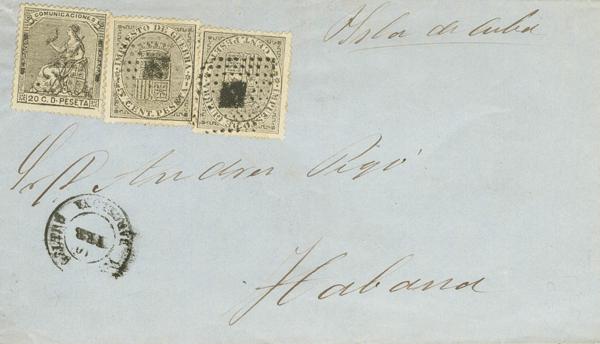 COMUNICACIONES
20 C. D. PESETA
IMPUESTO DE GUERRA
5 CENT. PES
IMPUESTO DE GUERRA
CENT. PESETA
Isla de Cuba
Sr. D. Andres Rigó
Habana
FEB